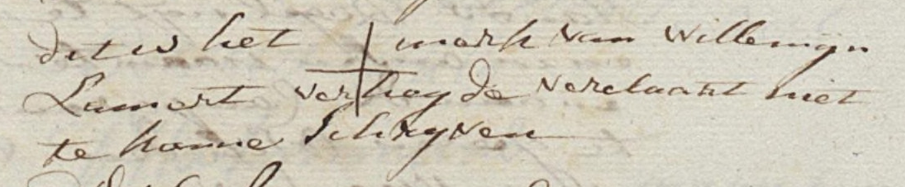 dit is het + mark van Willemijn
Lamort Verhoyde verclaart niet
te konne Schryven